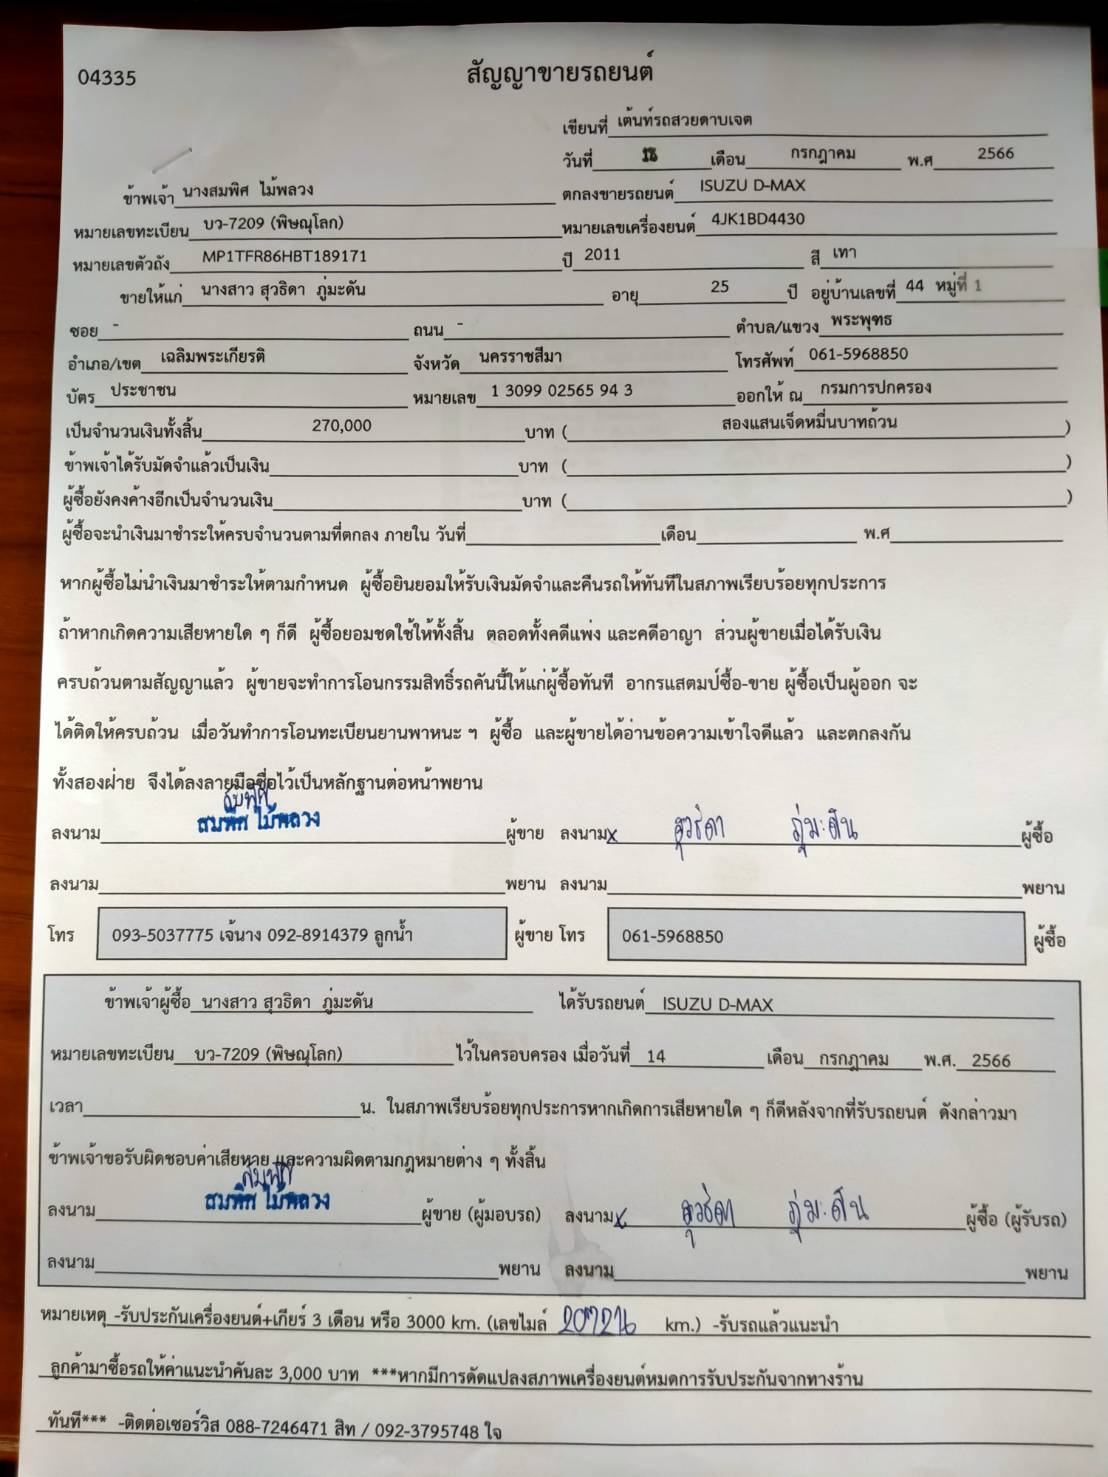 04335
สัญญาขายรถยนต์
เขียนที่ เต้นท์รถสวยดาบเจต
วันที่ เดือน กรกฎาคม พ.ศ 2566
ข้าพเจ้า นางสมพิศ ไม้พลวง ตกลงขายรถยนต์ ISUZU D-MAX
หมายเลขทะเบียน บว-7209 (พิษณุโลก) หมายเลขเครื่องยนต์ 4JK1BD4430
หมายเลขตัวถัง MP1TFR86HBT189171 ปี 2011 สี เทา
ขายให้แก่ นางสาว สุวธิดา ภู่มะดัน อายุ 25 ปี อยู่บ้านเลขที่ 44 หมู่ที่ 1
ซอย - ถนน - ตำบล/แขวง พระพุทธ
อำเภอ/เขต เฉลิมพระเกียรติ จังหวัด นครราชสีมา โทรศัพท์ 061-5968850
บัตร ประชาชน หมายเลข 1 3099 02565 94 3 ออกให้ ณ กรมการปกครอง
เป็นจำนวนเงินทั้งสิ้น 270,000 บาท ( สองแสนเจ็ดหมื่นบาทถ้วน )
ข้าพเจ้าได้รับมัดจำแล้วเป็นเงิน บาท ( )
ผู้ซื้อยังคงค้างอีกเป็นจำนวนเงิน บาท ( )
ผู้ซื้อจะนำเงินมาชำระให้ครบจำนวนตามที่ตกลง ภายใน วันที่ เดือน พ.ศ
หากผู้ซื้อไม่นำเงินมาชำระให้ตามกำหนด ผู้ซื้อยินยอมให้รับเงินมัดจำและคืนรถให้ทันทีในสภาพเรียบร้อยทุกประการ
ถ้าหากเกิดความเสียหายใด ๆ ก็ดี ผู้ซื้อยอมชดใช้ให้ทั้งสิ้น ตลอดทั้งคดีแพ่ง และคดีอาญา ส่วนผู้ขายเมื่อได้รับเงิน
ครบถ้วนตามสัญญาแล้ว ผู้ขายจะทำการโอนกรรมสิทธิ์รถคันนี้ให้แก่ผู้ซื้อทันที อากรแสตมป์ซื้อ-ขาย ผู้ซื้อเป็นผู้ออก จะ
ได้ติดให้ครบถ้วน เมื่อวันทำการโอนทะเบียนยานพาหนะ ฯ ผู้ซื้อ และผู้ขายได้อ่านข้อความเข้าใจดีแล้ว และตกลงกัน
ทั้งสองฝ่าย จึงได้ลงลายมือชื่อไว้เป็นหลักฐานต่อหน้าพยาน
สมพิศ
ลงนาม สมพิศ ไม้พลวง ผู้ขาย ลงนาม x สุวธิดา ภู่มะดัน ผู้ซื้อ
ลงนาม พยาน ลงนาม พยาน
โทร 093-5037775 เจ้นาง 092-8914379 ลูกน้ำ ผู้ขาย โทร 061-5968850 ผู้ซื้อ
ข้าพเจ้าผู้ซื้อ นางสาว สุวธิดา ภู่มะดัน ได้รับรถยนต์ ISUZU D-MAX
หมายเลขทะเบียน บว-7209 (พิษณุโลก) ไว้ในครอบครอง เมื่อวันที่ 14 เดือน กรกฎาคม พ.ศ. 2566
เวลา น. ในสภาพเรียบร้อยทุกประการหากเกิดการเสียหายใด ๆ ก็ดีหลังจากที่รับรถยนต์ ดังกล่าวมา
ข้าพเจ้าขอรับผิดชอบค่าเสียหาย และความผิดตามกฎหมายต่าง ๆ ทั้งสิ้น
สมพิศ
ลงนาม สมพิศ ไม้พลวง ผู้ขาย (ผู้มอบรถ) ลงนาม x สุวธิดา ภู่มะดัน ผู้ซื้อ (ผู้รับรถ)
ลงนาม พยาน ลงนาม พยาน
หมายเหตุ -รับประกันเครื่องยนต์+เกียร์ 3 เดือน หรือ 3000 km. (เลขไมล์ 207216 km.) -รับรถแล้วแนะนำ
ลูกค้ามาซื้อรถให้ค่าแนะนำคันละ 3,000 บาท ***หากมีการดัดแปลงสภาพเครื่องยนต์หมดการรับประกันจากทางร้าน
ทันที*** -ติดต่อเซอร์วิส 088-7246471 สิท / 092-3795748 ใจ